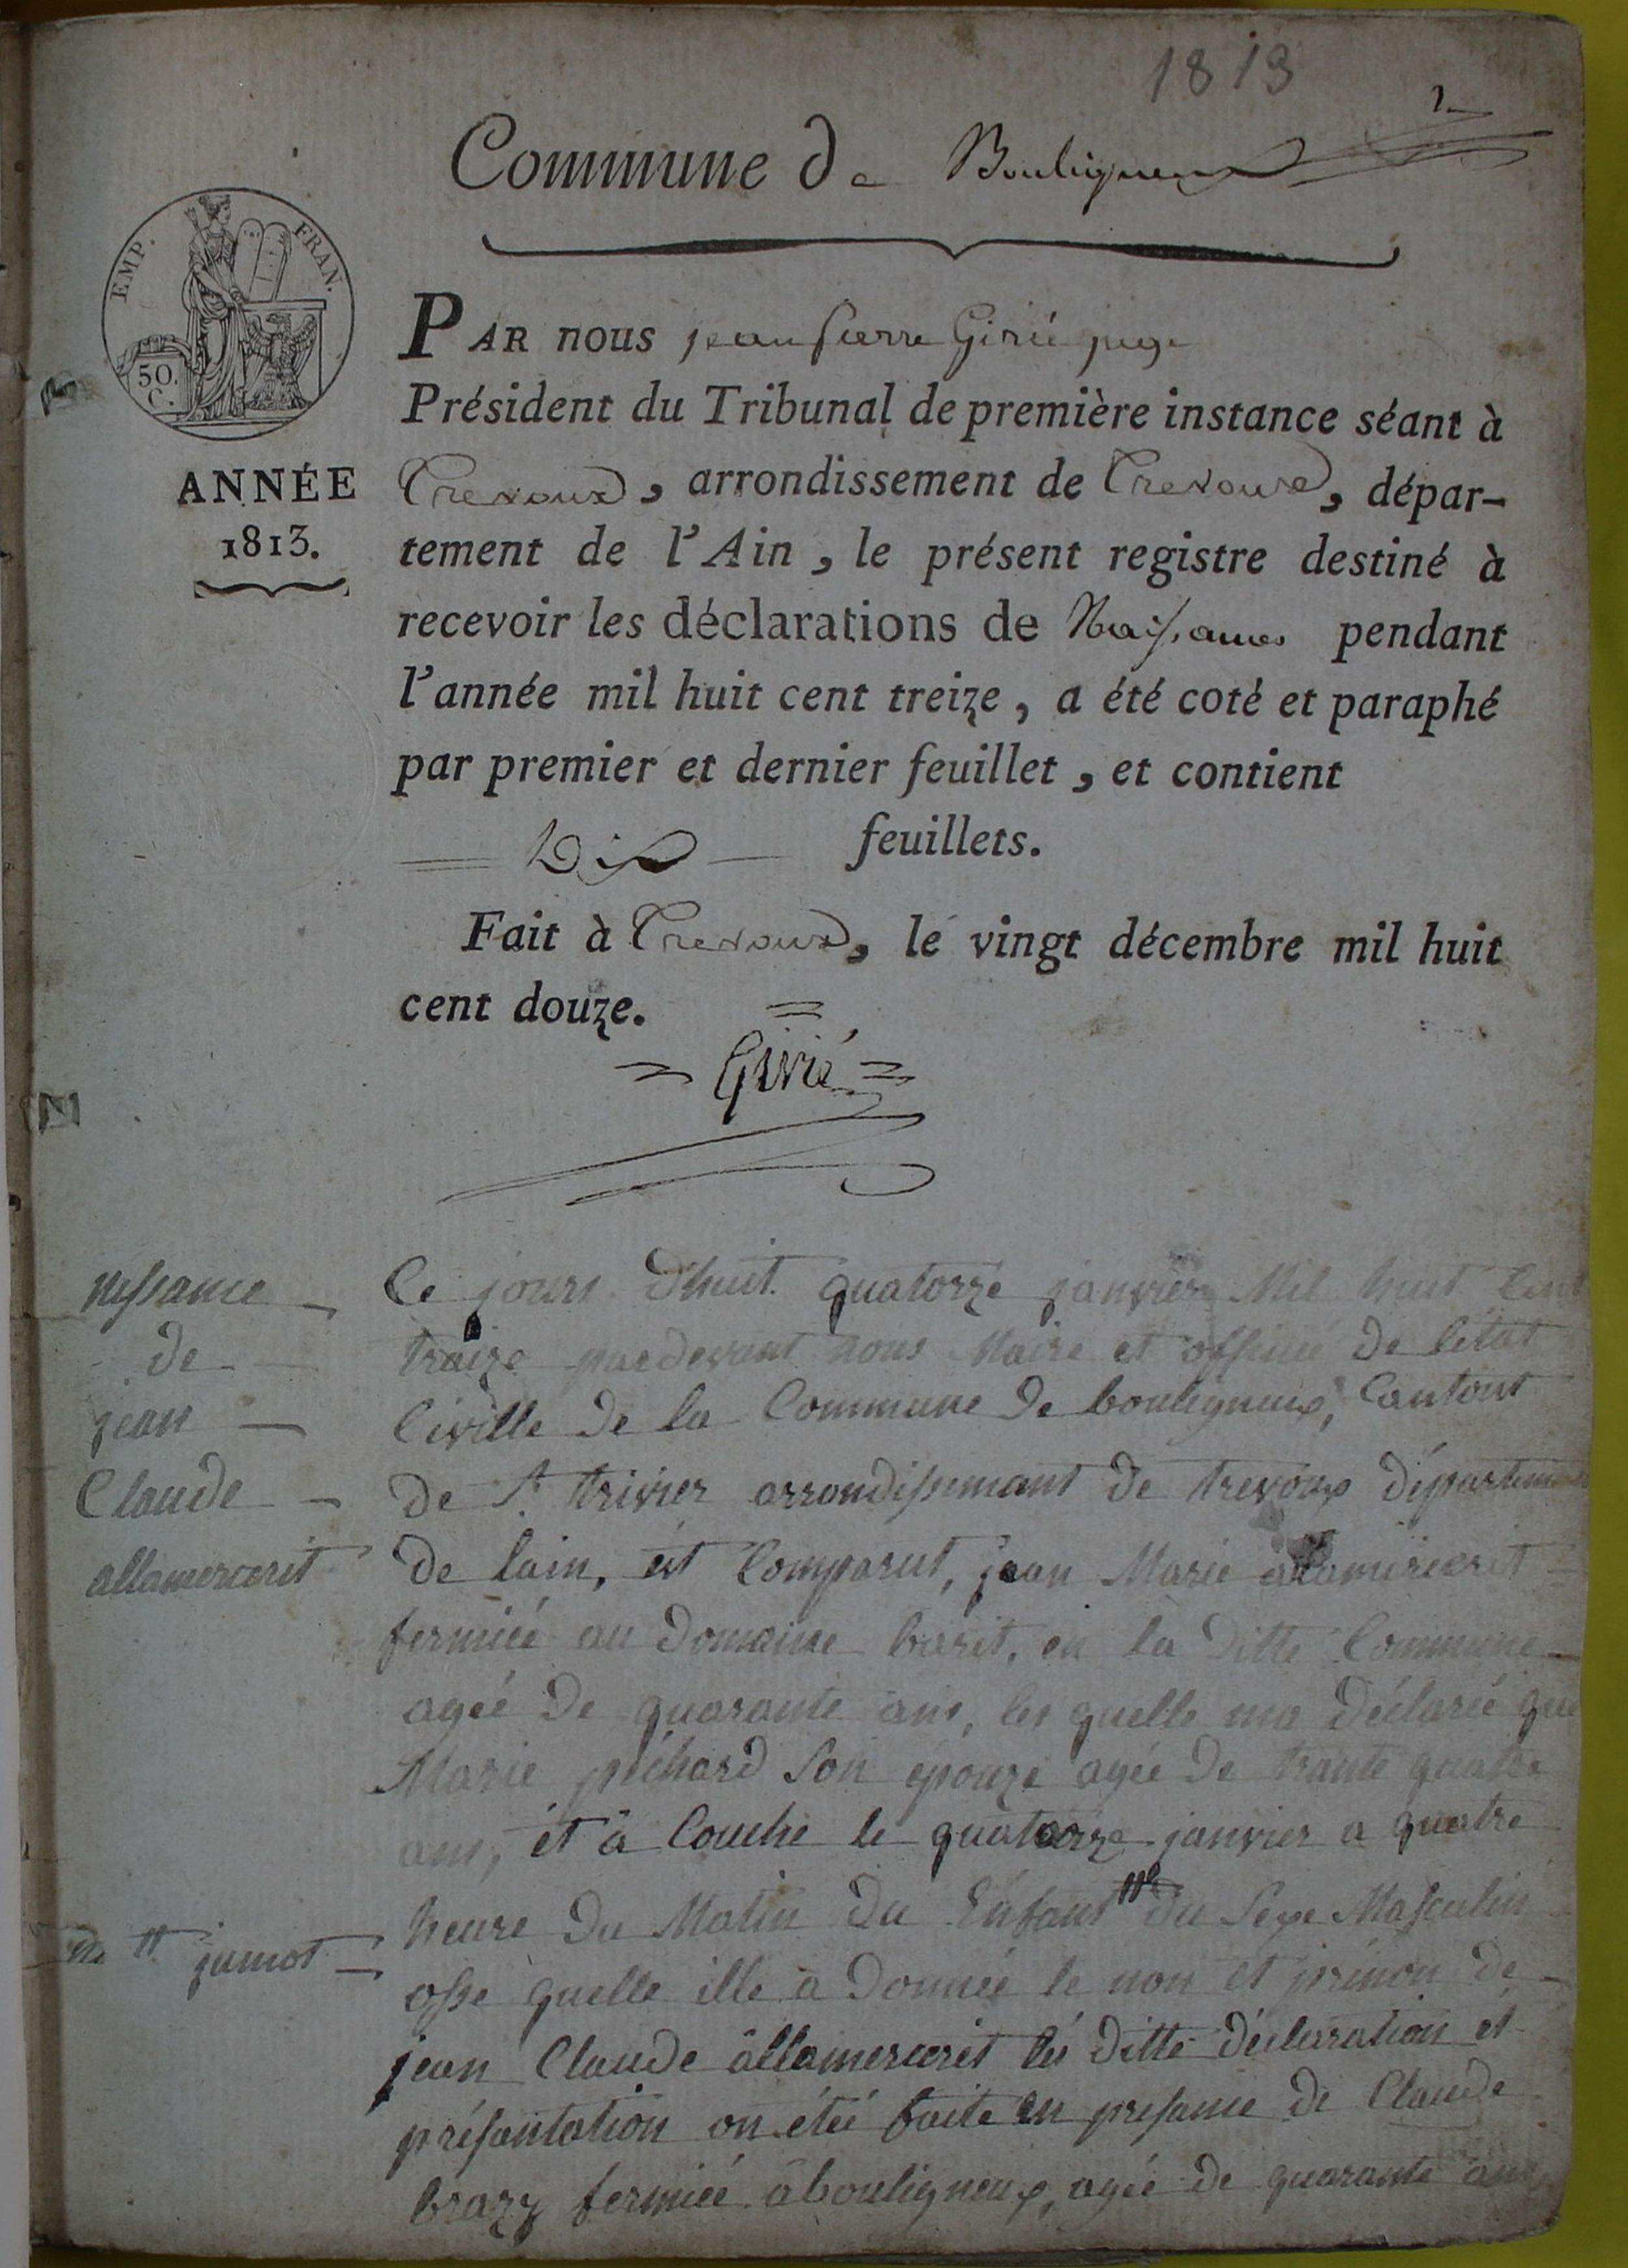 1813
1
Commune de Bouligneux
EMP. FRAN.
50.
C.
ANNÉE
1813.
PAR nous jean pierre Girié juge
Président du Tribunal de première instance séant à
Trevoux, arrondissement de Trevoux, dépar-
tement de l'Ain, le présent registre destiné à
recevoir les déclarations de Naissances pendant
l'année mil huit cent treize, a été coté et paraphé
par premier et dernier feuillet, et contient
Dix feuillets.
Fait à Trevoux, le vingt décembre mil huit
cent douze.
Girié
nessance
de
jean
Claude
allamercerit
Ce jours d'huit quatorze janvier Mil huit Cent
traize pardevant nous Maire et officié de letat
Civille de la Commune de bouligneux, Cantont
de St. trivier arrondissemant de trevoux département
de lain, est Comparut, jean Marie allamercerit
fermiée au domaine barit, en la ditte Commune
ageé de quarante ans, les quelle ma déclareé que
Marie pichard son épouze ageé de trante quatre
ans, ét à Couche le quatorze janvier a quatre
heure du Matin du Enfant du Sexe Masculin
jumot
osse quelle ille a donneé le non et prénon de
jean Claude âllamercerit les ditte déclaration et
présantation on éteé faite en presance de Claude
brazy fermieé à bouligneux, ageé de quarante ans